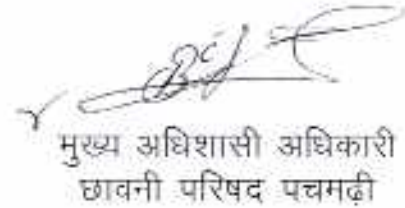 मुख्य अधिशासी अधिकारी
छावनी परिषद पचमढ़ी